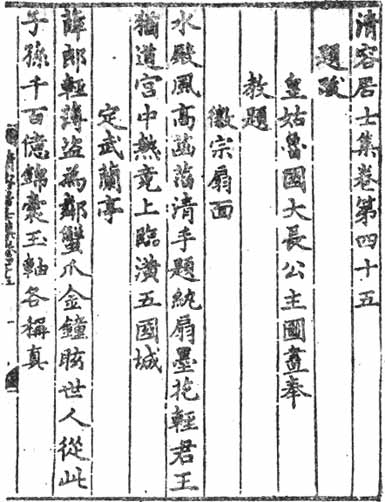 清容居士集卷第四十五
題跋
皇姑魯國大長公主圖畫奉
教題
徽宗扇面
水殿風高菡萏清手題紈扇墨花輕君王
猶道宮中熱竟上臨潢五國城
定武蘭亭
薛郎輕薄盜為鄰蟹爪金鐘眩世人從此
子孫千百億錦囊玉軸各稱真